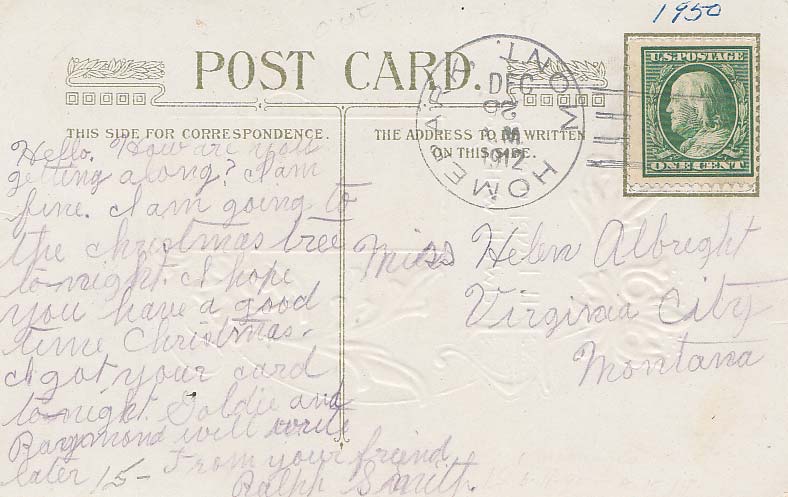 1950
POST CARD.
THIS SIDE FOR CORRESPONDENCE.
THE ADDRESS TO BE WRITTEN
ON THIS SIDE.
HOMEPARK MONT.
DEC
U.S. POSTAGE
ONE CENT
Hello. How are you
getting along? I am
fine. I am going to
the christmas tree
to-night. I hope
you have a good
time Christmas.
I got your card
to-night. Goldie and
Raymond will write
later 15- From your friend
Ralph Smith.
Miss Helen Albright
Virginia City
Montana